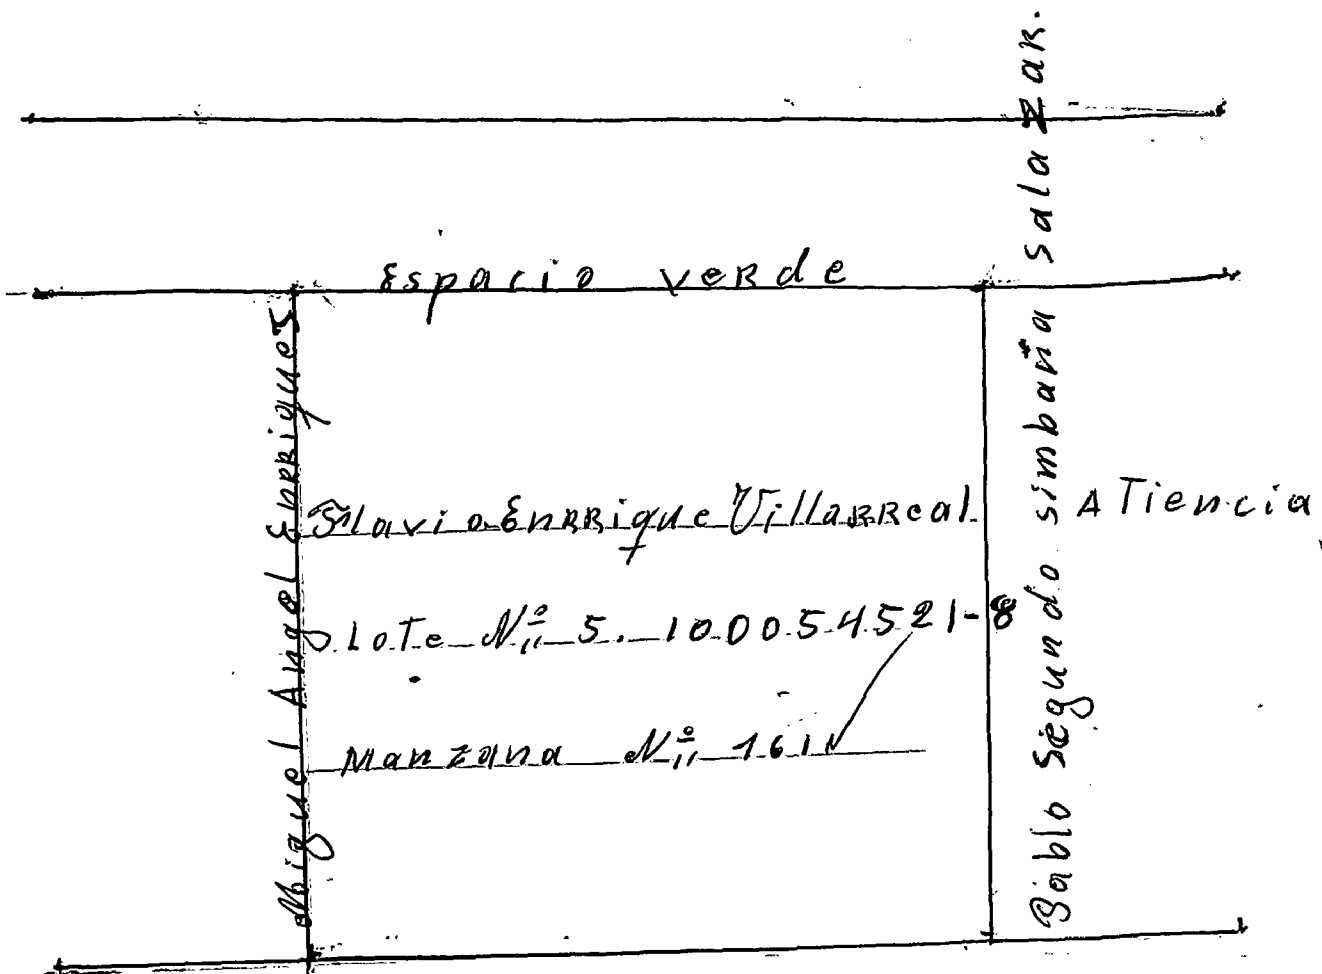 Espacio verde
Miguel Angel Enrriquez
Flavio Enrrique Villarreal.
Lote Nº 5. 100054521-8
Manzana Nº 161
Pablo Segundo simbaña salazar.
A Tiencia